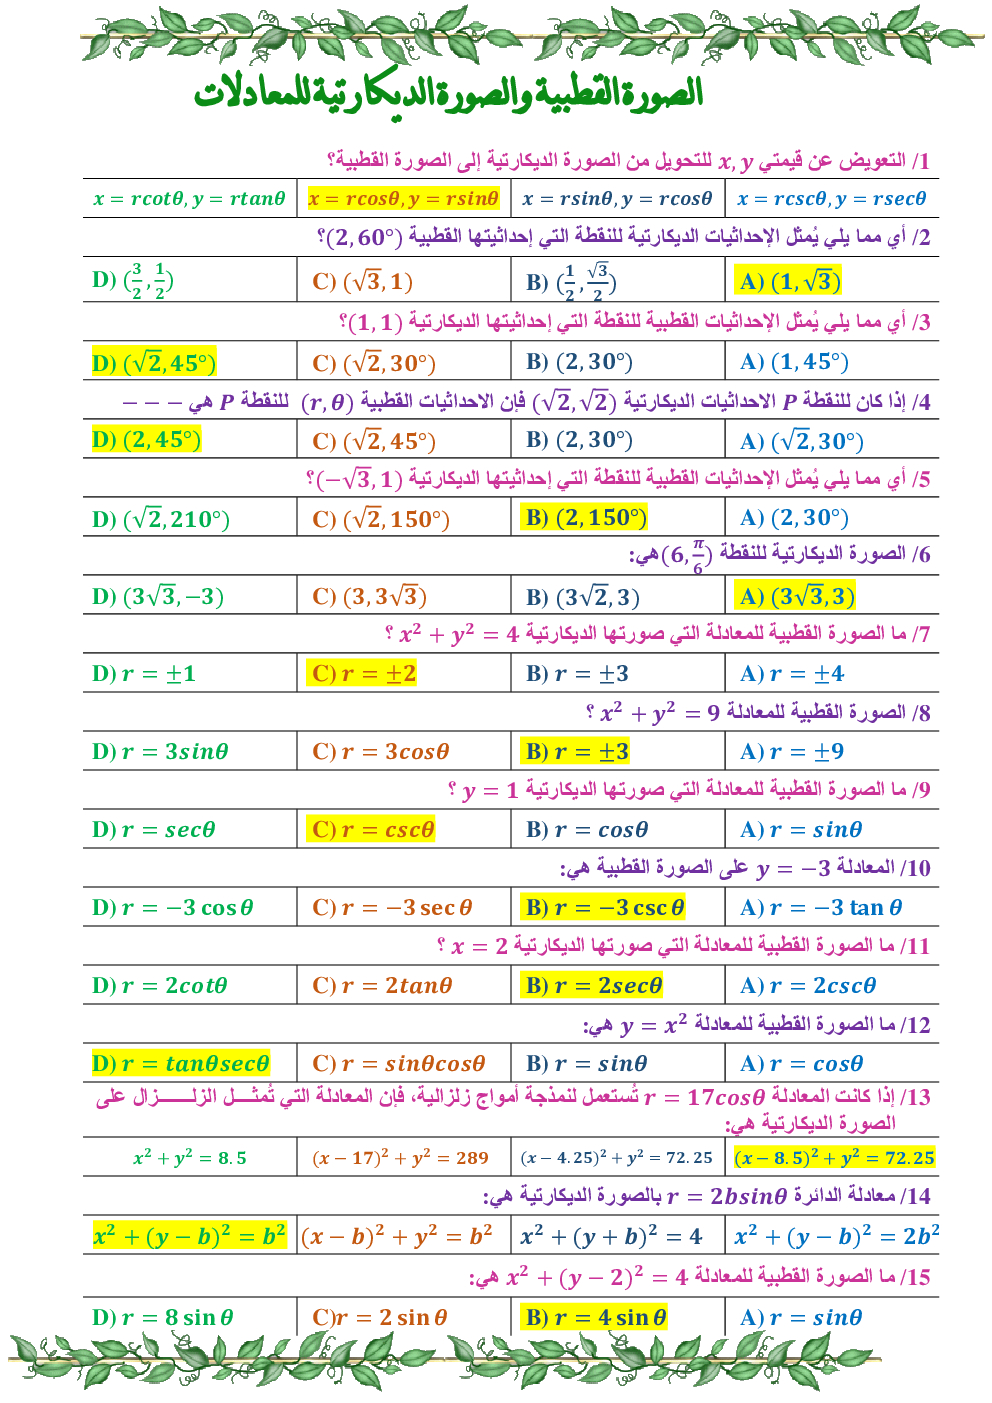 الصورة القطبية والصورة الديكارتية للمعادلات
1/ التعويض عن قيمتي x, y للتحويل من الصورة الديكارتية إلى الصورة القطبية؟
x = rcscθ, y = rsecθ x = rsinθ, y = rcosθ x = rcosθ, y = rsinθ x = rcotθ, y = rtanθ
2/ أي مما يلي يُمثل الإحداثيات الديكارتية للنقطة التي إحداثيتها القطبية (2, 60°)؟
A) (1, √3) B) (1/2, √3/2) C) (√3, 1) D) (3/2, 1/2)
3/ أي مما يلي يُمثل الإحداثيات القطبية للنقطة التي إحداثيتها الديكارتية (1, 1)؟
A) (1, 45°) B) (2, 30°) C) (√2, 30°) D) (√2, 45°)
4/ إذا كان للنقطة P الاحداثيات الديكارتية (√2, √2) فإن الاحداثيات القطبية (r, θ) للنقطة P هي − − −
A) (√2, 30°) B) (2, 30°) C) (√2, 45°) D) (2, 45°)
5/ أي مما يلي يُمثل الإحداثيات القطبية للنقطة التي إحداثيتها الديكارتية (−√3, 1)؟
A) (2, 30°) B) (2, 150°) C) (√2, 150°) D) (√2, 210°)
6/ الصورة الديكارتية للنقطة (6, π/6) هي:
A) (3√3, 3) B) (3√2, 3) C) (3, 3√3) D) (3√3, −3)
7/ ما الصورة القطبية للمعادلة التي صورتها الديكارتية x² + y² = 4 ؟
A) r = ±4 B) r = ±3 C) r = ±2 D) r = ±1
8/ الصورة القطبية للمعادلة x² + y² = 9 ؟
A) r = ±9 B) r = ±3 C) r = 3cosθ D) r = 3sinθ
9/ ما الصورة القطبية للمعادلة التي صورتها الديكارتية y = 1 ؟
A) r = sinθ B) r = cosθ C) r = cscθ D) r = secθ
10/ المعادلة y = −3 على الصورة القطبية هي:
A) r = −3 tan θ B) r = −3 csc θ C) r = −3 sec θ D) r = −3 cos θ
11/ ما الصورة القطبية للمعادلة التي صورتها الديكارتية x = 2 ؟
A) r = 2cscθ B) r = 2secθ C) r = 2tanθ D) r = 2cotθ
12/ ما الصورة القطبية للمعادلة y = x² هي:
A) r = cosθ B) r = sinθ C) r = sinθcosθ D) r = tanθsecθ
13/ إذا كانت المعادلة r = 17cosθ تُستعمل لنمذجة أمواج زلزالية، فإن المعادلة التي تُمثـــل الزلـــــــزال على
الصورة الديكارتية هي:
(x − 8.5)² + y² = 72.25 (x − 4.25)² + y² = 72.25 (x − 17)² + y² = 289 x² + y² = 8.5
14/ معادلة الدائرة r = 2bsinθ بالصورة الديكارتية هي:
x² + (y − b)² = 2b² x² + (y + b)² = 4 (x − b)² + y² = b² x² + (y − b)² = b²
15/ ما الصورة القطبية للمعادلة x² + (y − 2)² = 4 هي:
A) r = sinθ B) r = 4 sin θ C)r = 2 sin θ D) r = 8 sin θ